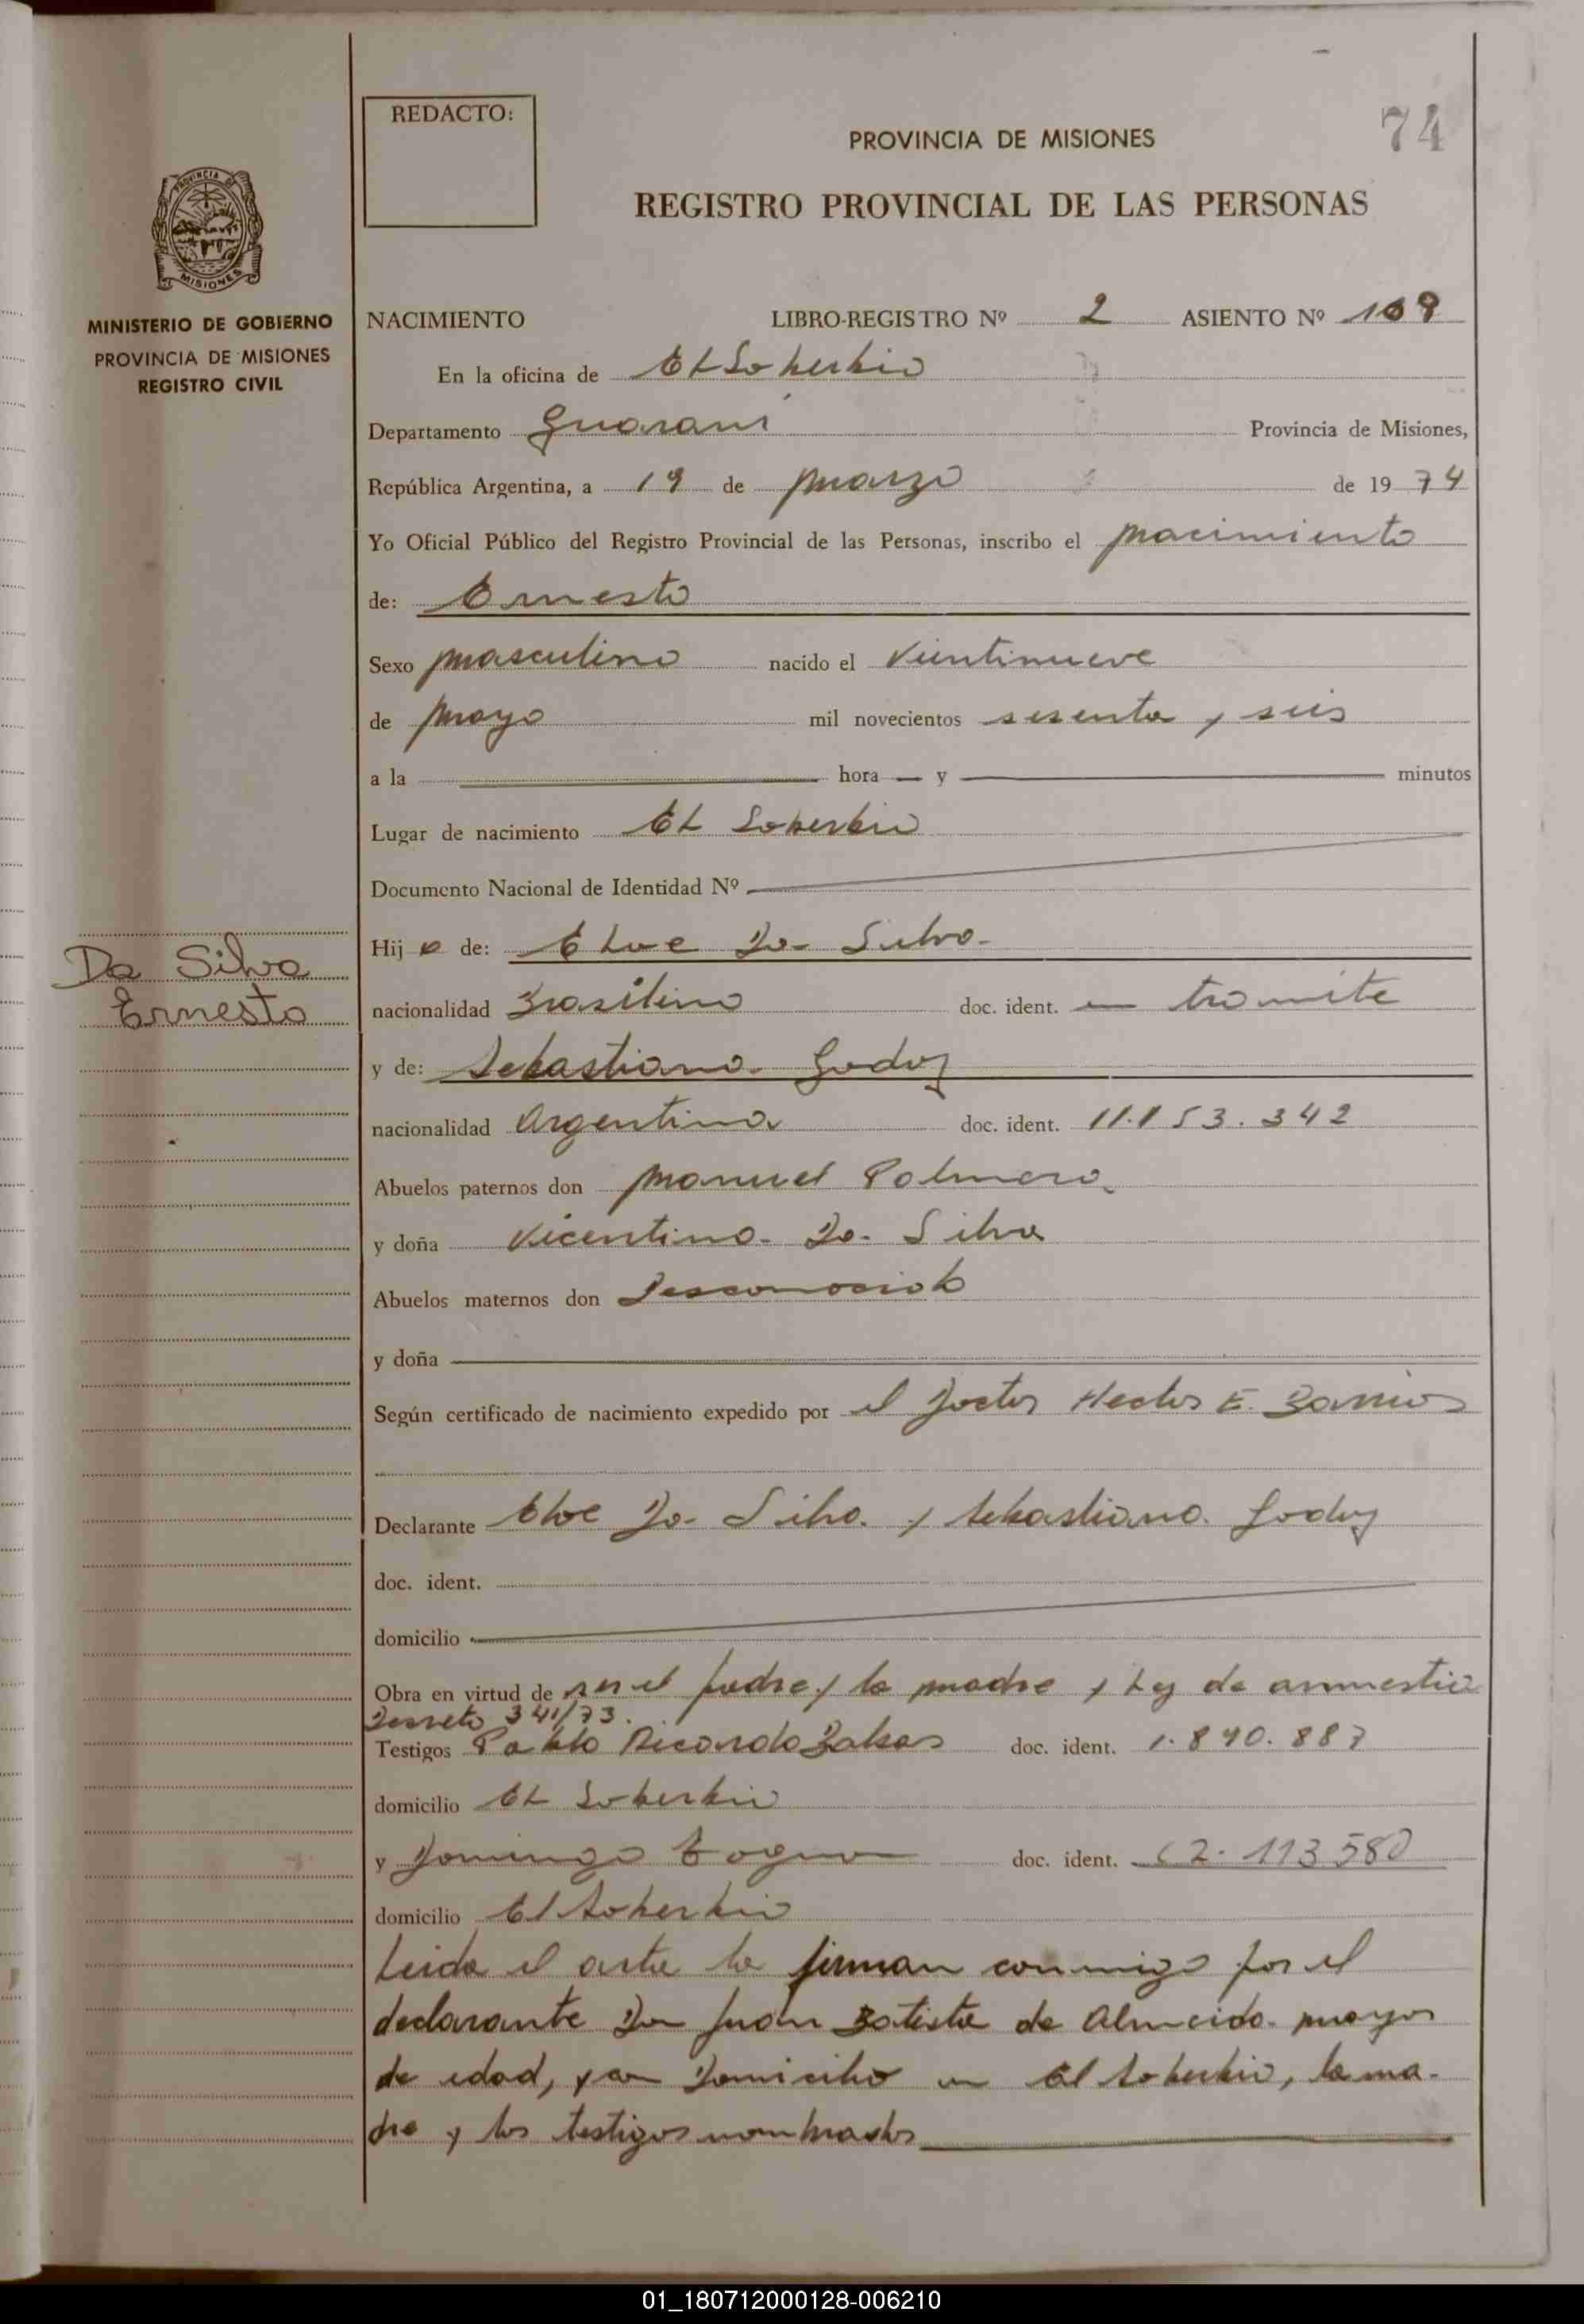 REDACTO:
74
PROVINCIA DE MISIONES
REGISTRO PROVINCIAL DE LAS PERSONAS
PROVINCIA DE MISIONES
MINISTERIO DE GOBIERNO
PROVINCIA DE MISIONES
REGISTRO CIVIL
NACIMIENTO LIBRO-REGISTRO Nº 2 ASIENTO Nº 109
En la oficina de El Soberbio
Departamento Guarani Provincia de Misiones,
República Argentina, a 19 de marzo de 1974
Yo Oficial Público del Registro Provincial de las Personas, inscribo el nacimiento
de: Ernesto
Sexo masculino nacido el Veintinueve
de mayo mil novecientos sesenta y seis
a la hora y minutos
Lugar de nacimiento El Soberbio
Documento Nacional de Identidad Nº
Da Silva
Ernesto
Hijo de: Eloe Da Silva
nacionalidad Brasilino doc. ident. en tramite
y de: Sebastiana Godoy
nacionalidad Argentina doc. ident. 11.153.342
Abuelos paternos don Manuel Palmera
y doña Vicentina Da Silva
Abuelos maternos don Desconocido
y doña
Según certificado de nacimiento expedido por el Doctor Hector E. Barrios
Declarante Eloe Da Silva y Sebastiana Godoy
doc. ident.
domicilio
Obra en virtud de ser el padre y la madre y Ley de amnestia
Decreto 341/73.
Testigos Pablo Ricardo Balsas doc. ident. 1.890.887
domicilio El Soberbio
y Domingo doc. ident. 113580
domicilio El Soberbio
Leida el acta la firman conmigo por el
declarante Don Juan Batista de Almeida mayor
de edad, y con Domicilio en El Soberbio, la ma-
dre y los testigos nombrados
01_180712000128-006210